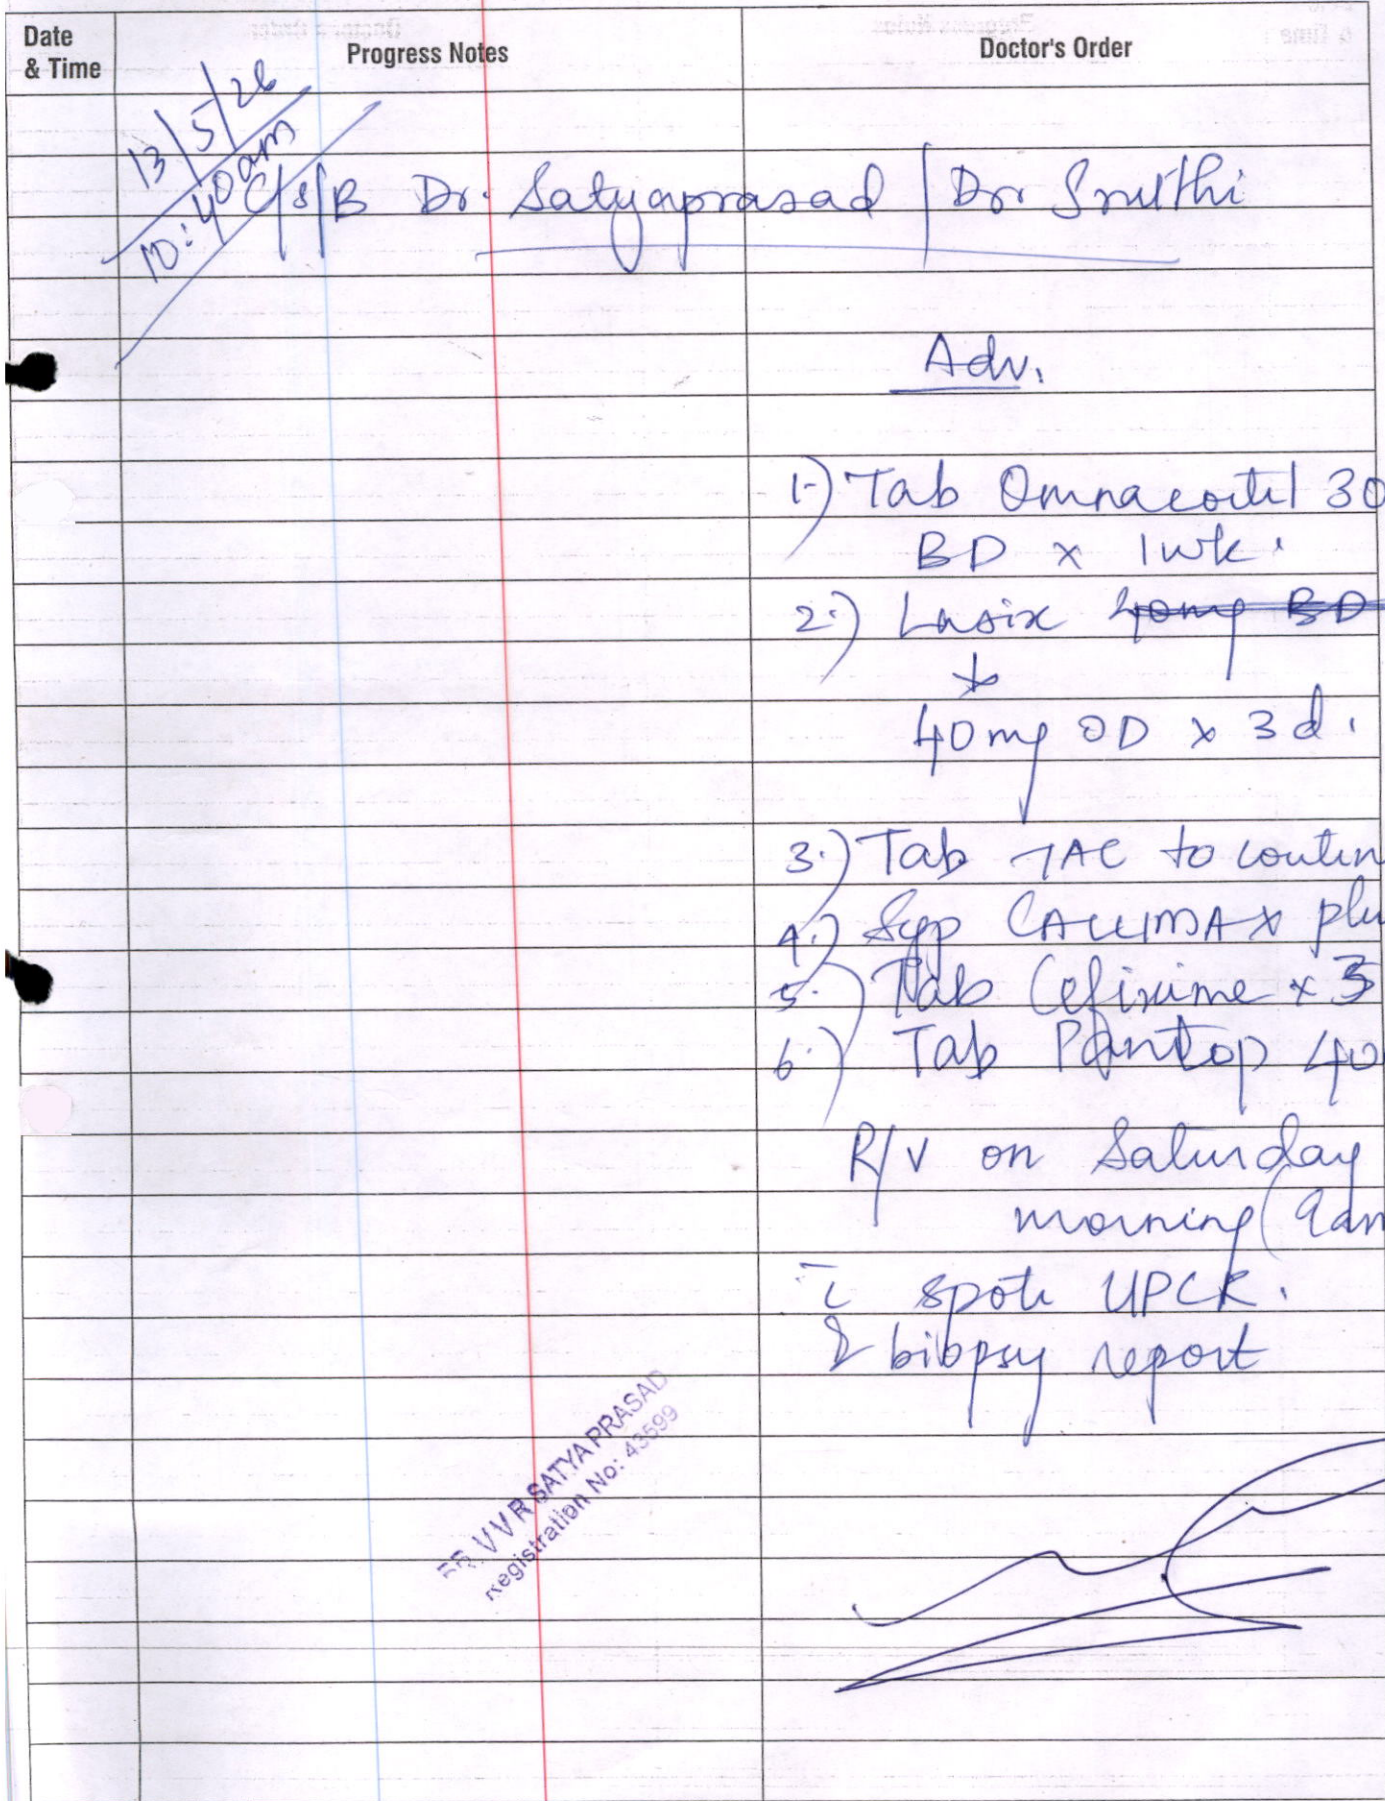 Date
& Time
Progress Notes
Doctor's Order
13/5/26
10:40am
C/S/B Dr. Satyaprasad / Dr Sruthi
Adv.
1.) Tab Omnacortil 30
BD x 1wk.
2.) Lasix 40mg BD
40mg OD x 3d.
3.) Tab TAC to contin
4.) Syp CALCIMAX plu
5.) Tab Cefixime x 3
6.) Tab Pantop 40
R/V on Saturday
morning (9am
c̄ spot UPCR.
& biopsy report
DR. V V R SATYA PRASAD
Registration No: 43599